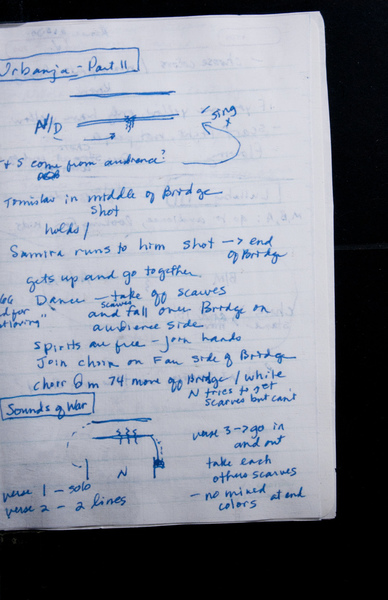 Urbanja - Part II
N/D
sing
& S come from audience?
Tomislav in middle of Bridge
shot
holds/
Samira runs to him shot → end
of Bridge
gets up and go together
Dance - take off scarves
scarves
and fall over Bridge on
audience side
Spirits are free - join hands
Join choir on Far side of Bridge
choir @ m 74 move off Bridge / while
N tries to get
scarves but can't
Sounds of War
verse 3 → go in
and out
N
take each
others scarves
verse 1 - solo
- no mixed
colors at end
verse 2 - 2 lines